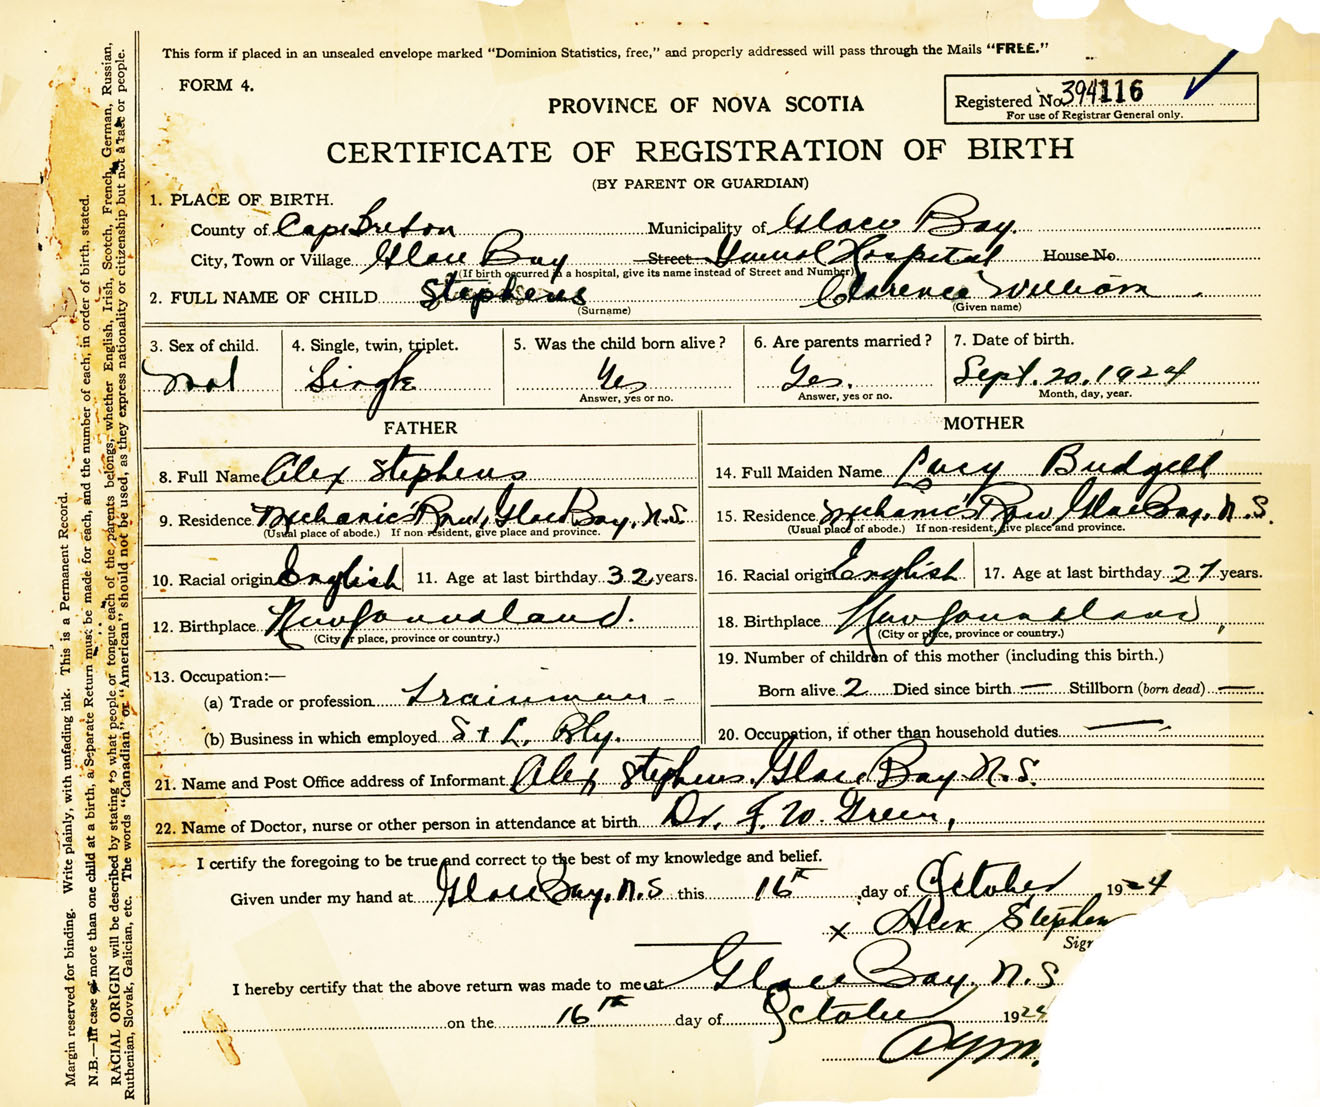 This form if placed in an unsealed envelope marked "Dominion Statistics, free," and properly addressed will pass through the Mails "FREE."
FORM 4.
Registered No. 394116
For use of Registrar General only.
PROVINCE OF NOVA SCOTIA
CERTIFICATE OF REGISTRATION OF BIRTH
(BY PARENT OR GUARDIAN)
1. PLACE OF BIRTH.
County of Cape Breton Municipality of Glace Bay.
City, Town or Village Glace Bay Street Hospital House No.
(If birth occurred in a hospital, give its name instead of Street and Number)
2. FULL NAME OF CHILD Stephens Clarence William
(Surname) (Given name)
3. Sex of child. 4. Single, twin, triplet. 5. Was the child born alive? 6. Are parents married? 7. Date of birth.
Mal Single Yes Yes. Sept. 20, 1924
Answer, yes or no. Answer, yes or no. Month, day, year.
FATHER MOTHER
8. Full Name Alex Stephens 14. Full Maiden Name Lucy Budgell
9. Residence Mechanic's Row, Glace Bay, N.S. 15. Residence Mechanic's Row Glace Bay, N.S.
(Usual place of abode.) If non-resident, give place and province. (Usual place of abode.) If non-resident, give place and province.
10. Racial origin English 11. Age at last birthday 32 years. 16. Racial origin English 17. Age at last birthday 27 years.
12. Birthplace Newfoundland. 18. Birthplace Newfoundland,
(City or place, province or country.) (City or place, province or country.)
13. Occupation:— 19. Number of children of this mother (including this birth.)
(a) Trade or profession Trainman - Born alive 2 Died since birth — Stillborn (born dead) —
(b) Business in which employed S & L. Rly. 20. Occupation, if other than household duties —
21. Name and Post Office address of Informant Alex Stephens, Glace Bay N.S.
22. Name of Doctor, nurse or other person in attendance at birth Dr. F. W. Green,
I certify the foregoing to be true and correct to the best of my knowledge and belief.
Given under my hand at Glace Bay, N.S this 16th day of October 1924
x Alex Stephen
Sign
I hereby certify that the above return was made to me at Glace Bay, N.S
on the 16th day of October 1924
Margin reserved for binding. Write plainly, with unfading ink. This is a Permanent Record.
N.B.—In case of more than one child at a birth, a Separate Return must be made for each, and the number of each, in order of birth, stated.
RACIAL ORIGIN will be described by stating to what people or tongue each of the parents belongs, whether English, Irish, Scotch, French, German, Russian,
Ruthenian, Slovak, Galician, etc. The words "Canadian" or "American" should not be used, as they express nationality or citizenship but not a race or people.